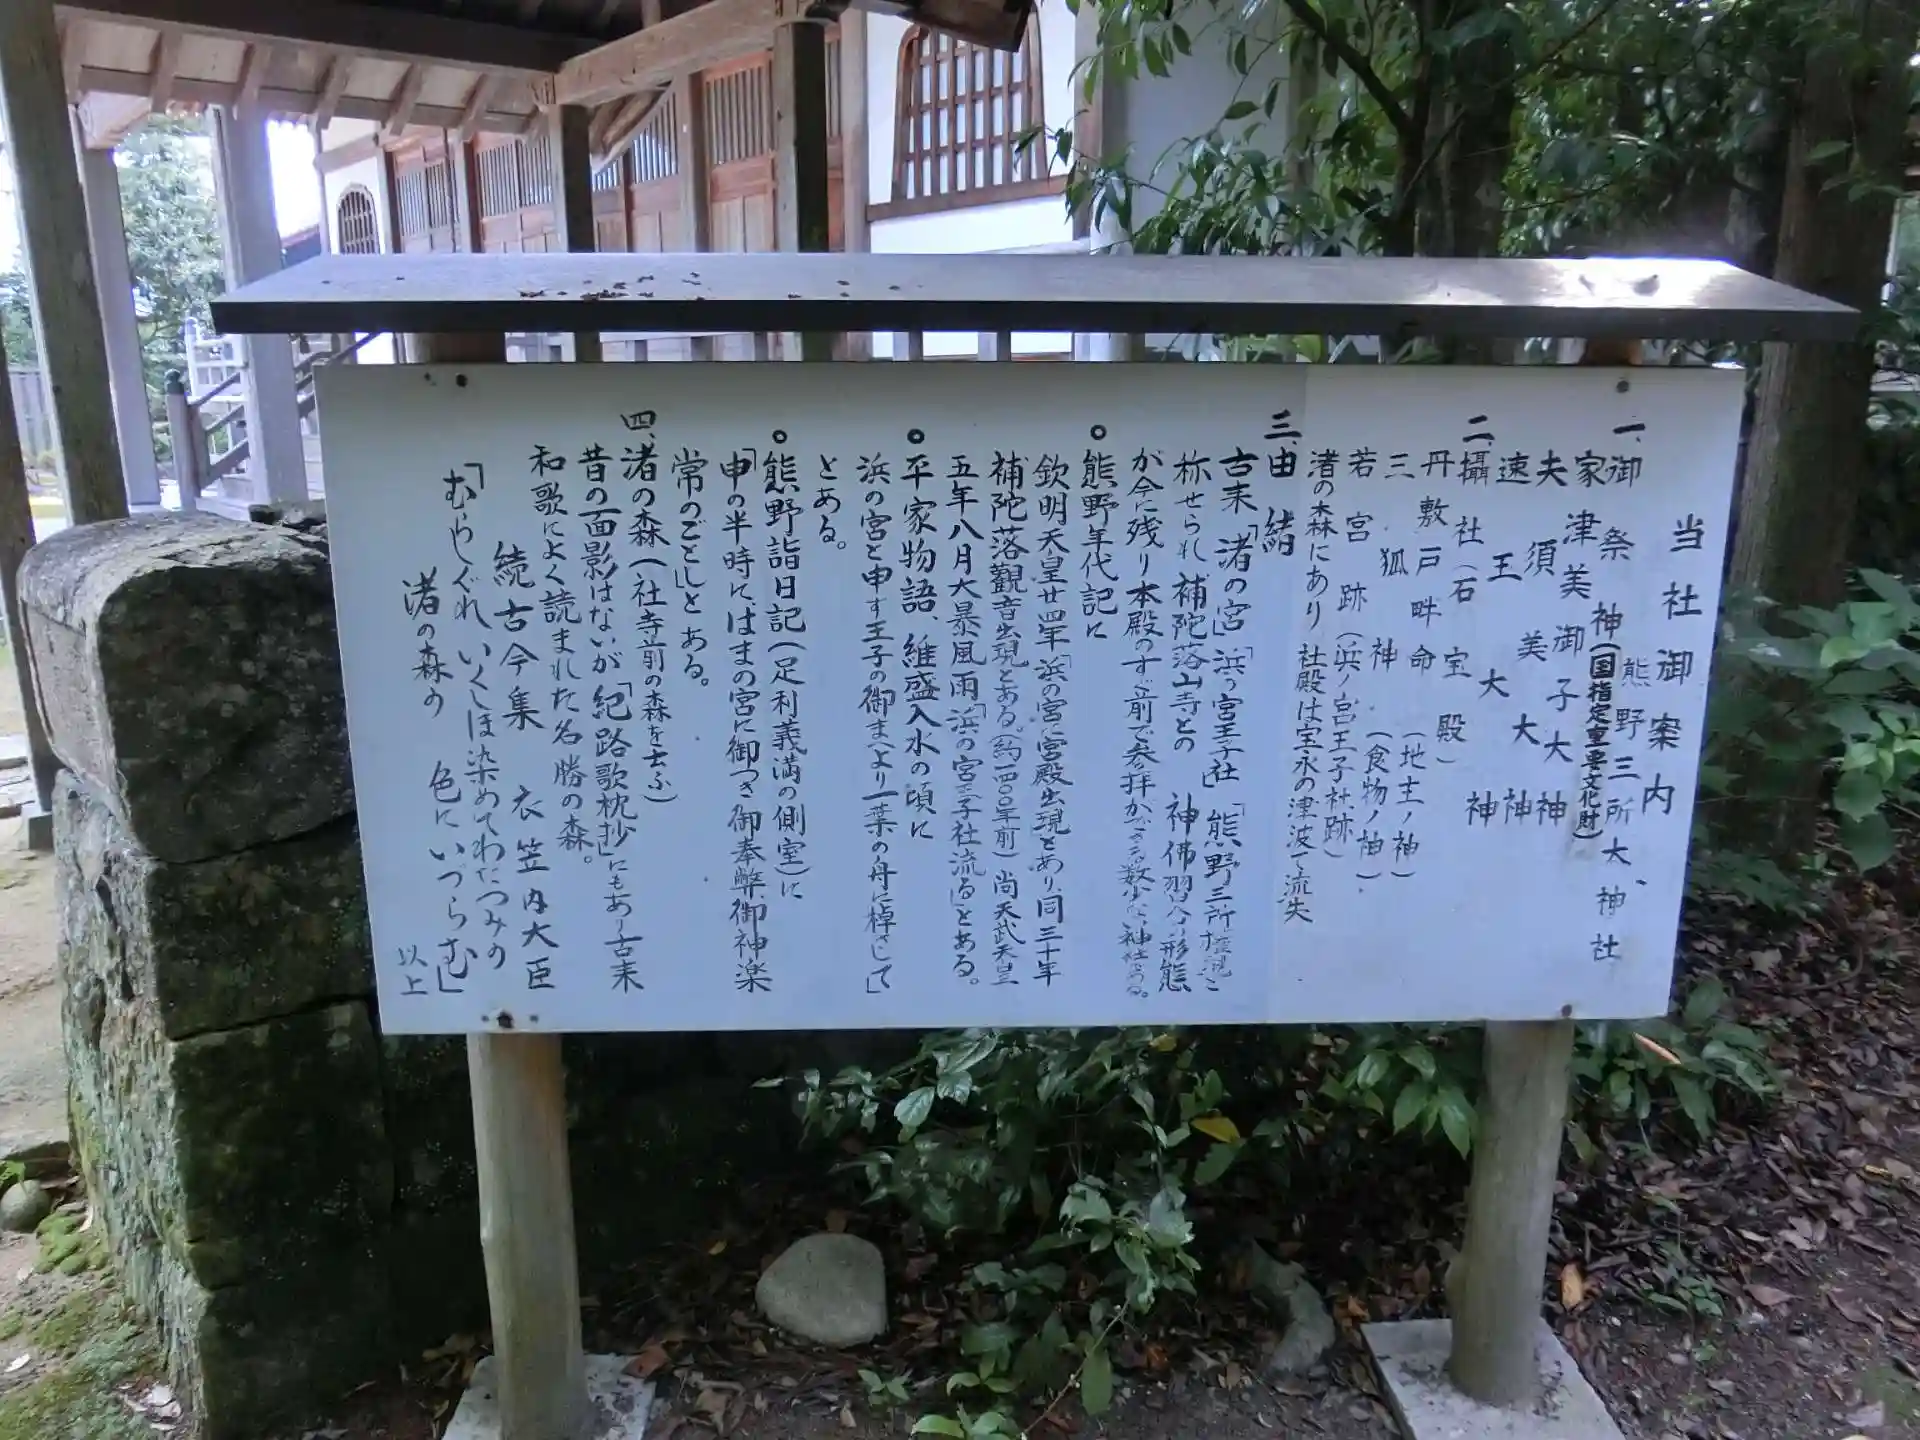 当社御案内
熊野三所大神社
一、御祭神(国指定重要文化財)
家津美御子大神
夫須美大神
速玉大神
二、攝社(石宝殿)
丹敷戸畔命(地主ノ神)
三狐神(食物ノ神)
若宮跡(浜ノ宮王子社跡)
渚の森にあり 社殿は宝永の津波で流失
三、由緒
古来「渚の宮」「浜の宮王子社」「熊野三所権現」と
称せられ補陀落山寺との神佛習合の形態
が今に残り本殿のすぐ前で参拝ができる数少い神社である。
熊野年代記に
欽明天皇廿四年「浜の宮に宮殿出現とあり、同三十年
補陀落觀音出現とある。(約一四〇〇年前)尚天武天皇
五年八月大暴風雨「浜の宮王子社流る」とある。
平家物語、維盛入水の頃に
浜の宮と申す王子の御まへより一葉の舟に棹さして」
とある。
熊野詣日記(足利義満の側室)に
「申の半時にはまの宮に御つき御奉弊、御神楽
常のごとし」とある。
四、渚の森(社寺前の森を云ふ)
昔の面影はないが「紀路歌枕抄」にもあり古来
和歌によく読まれた名勝の森。
続古今集 衣笠内大臣
「むらしぐれいくしほ染めてわたつみの
渚の森の色にいづらむ」
以上